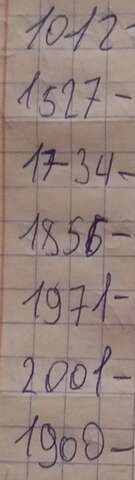 1012-
1527-
1734-
1856-
1971-
2001-
1900-